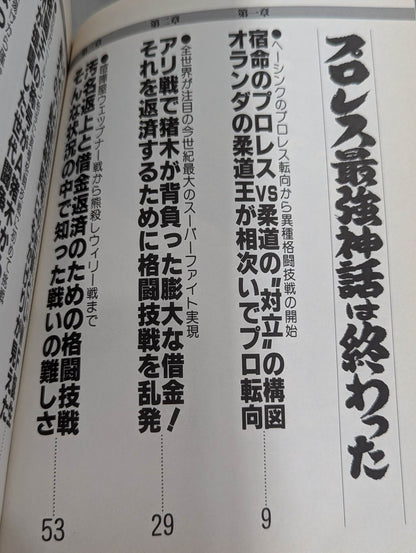 プロレス最強神話は終わった
第一章
●ヘーシンクのプロレス転向から異種格闘技戦の開始
宿命のプロレスVS柔道の“対立”の構図
オランダの柔道王が相次いでプロ転向
9
第二章
●全世界が注目の今世紀最大のスーパーファイト実現
アリ戦で猪木が背負った膨大な借金!
それを返済するために格闘技戦を乱発
29
ウェップナー戦から熊殺しウィリー戦まで
汚名返上と借金返済のための格闘技戦
そんな状況の中で知った戦いの難しさ
53